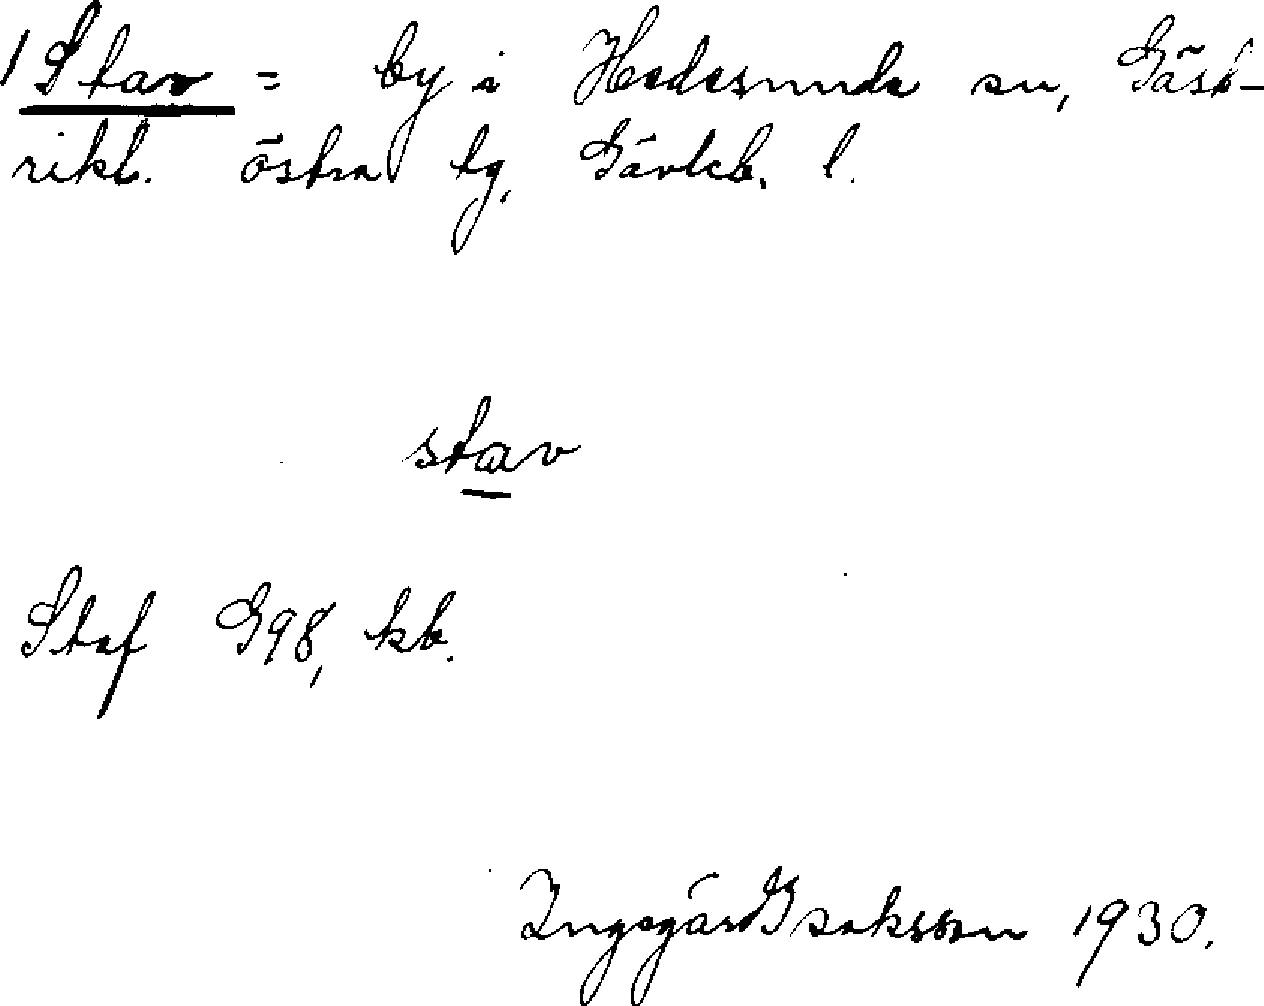 1 Stav = by i Hedesunda sn, Gäst-
rikl. östra tg, Gävleb. l.
stav
Staf G98, kb.
Ingegärd Isaksson 1930.